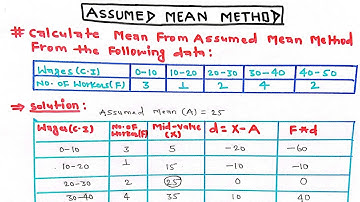 ASSUMED MEAN METHOD
# Calculate Mean From Assumed Mean Method
From the Following data:
Wages (C.I) 0-10 10-20 20-30 30-40 40-50
No. OF Workers(F) 3 1 2 4 2
⇒ Solution: Assumed Mean (A) = 25
Wages(C.I) No. of Workers(F) Mid-Value (X) d = X-A F*d
0-10 3 5 -20 -60
10-20 1 15 -10 -10
20-30 2 25 0 0
30-40 4 35 10 40